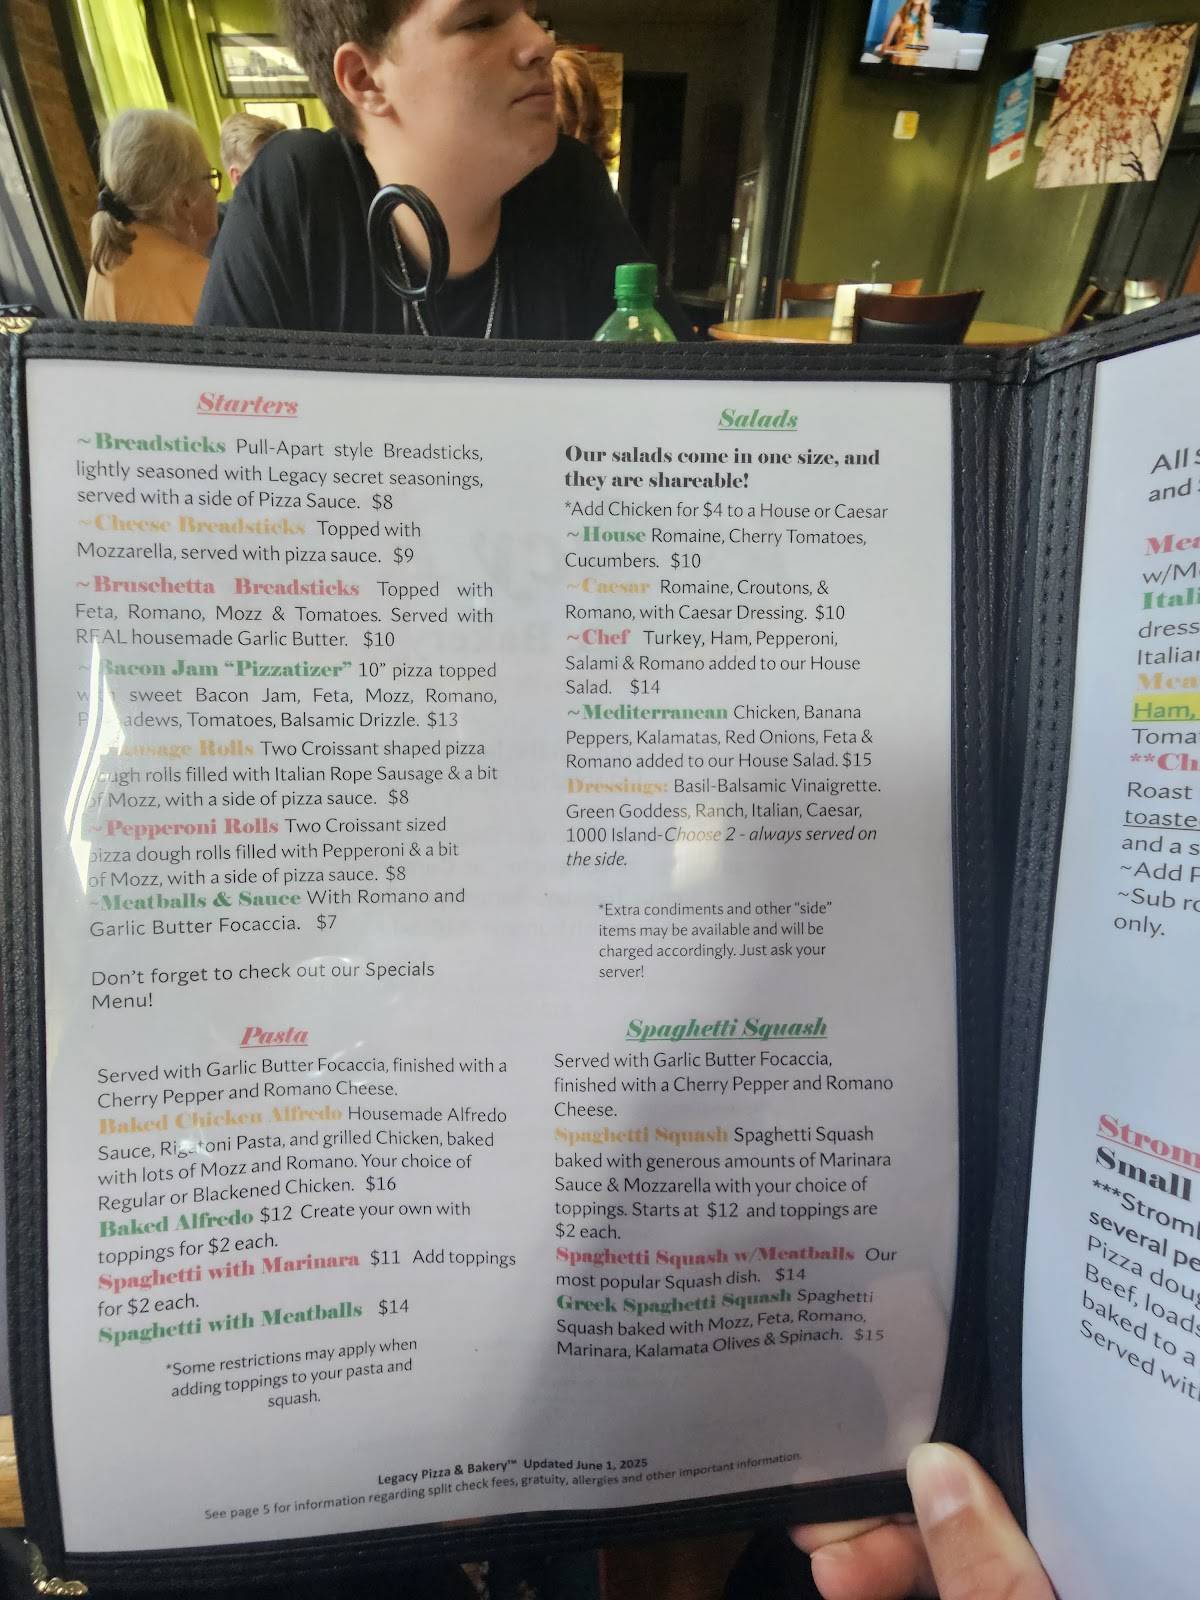 Starters
~Breadsticks Pull-Apart style Breadsticks,
lightly seasoned with Legacy secret seasonings,
served with a side of Pizza Sauce. $8
~Cheese Breadsticks Topped with
Mozzarella, served with pizza sauce. $9
~Bruschetta Breadsticks Topped with
Feta, Romano, Mozz & Tomatoes. Served with
REAL housemade Garlic Butter. $10
~Bacon Jam “Pizzatizer” 10” pizza topped
with sweet Bacon Jam, Feta, Mozz, Romano,
Tomatoes, Balsamic Drizzle. $13
Sausage Rolls Two Croissant shaped pizza
dough rolls filled with Italian Rope Sausage & a bit
of Mozz, with a side of pizza sauce. $8
~Pepperoni Rolls Two Croissant sized
pizza dough rolls filled with Pepperoni & a bit
of Mozz, with a side of pizza sauce. $8
~Meatballs & Sauce With Romano and
Garlic Butter Focaccia. $7
Don't forget to check out our Specials
Menu!
Pasta
Served with Garlic Butter Focaccia, finished with a
Cherry Pepper and Romano Cheese.
Baked Chicken Alfredo Housemade Alfredo
Sauce, Rigatoni Pasta, and grilled Chicken, baked
with lots of Mozz and Romano. Your choice of
Regular or Blackened Chicken. $16
Baked Alfredo $12 Create your own with
toppings for $2 each.
Spaghetti with Marinara $11 Add toppings
for $2 each.
Spaghetti with Meatballs $14
*Some restrictions may apply when
adding toppings to your pasta and
squash.
Salads
Our salads come in one size, and
they are shareable!
*Add Chicken for $4 to a House or Caesar
~House Romaine, Cherry Tomatoes,
Cucumbers. $10
~Caesar Romaine, Croutons, &
Romano, with Caesar Dressing. $10
~Chef Turkey, Ham, Pepperoni,
Salami & Romano added to our House
Salad. $14
~Mediterranean Chicken, Banana
Peppers, Kalamatas, Red Onions, Feta &
Romano added to our House Salad. $15
Dressings: Basil-Balsamic Vinaigrette.
Green Goddess, Ranch, Italian, Caesar,
1000 Island-Choose 2 - always served on
the side.
*Extra condiments and other “side”
items may be available and will be
charged accordingly. Just ask your
server!
Spaghetti Squash
Served with Garlic Butter Focaccia,
finished with a Cherry Pepper and Romano
Cheese.
Spaghetti Squash Spaghetti Squash
baked with generous amounts of Marinara
Sauce & Mozzarella with your choice of
toppings. Starts at $12 and toppings are
$2 each.
Spaghetti Squash w/Meatballs Our
most popular Squash dish. $14
Greek Spaghetti Squash Spaghetti
Squash baked with Mozz, Feta, Romano,
Marinara, Kalamata Olives & Spinach. $15
Legacy Pizza & Bakery™ Updated June 1, 2025
See page 5 for information regarding split check fees, gratuity, allergies and other important information.
All
and
w/M
Itali
dress
Italian
Mea
Ham,
Toma
**Ch
Roast
toaste
and a s
~Add
~Sub
only.
Strom
Small
***Stroml
several pe
Pizza doug
Beef, loads
baked to a
Served wit